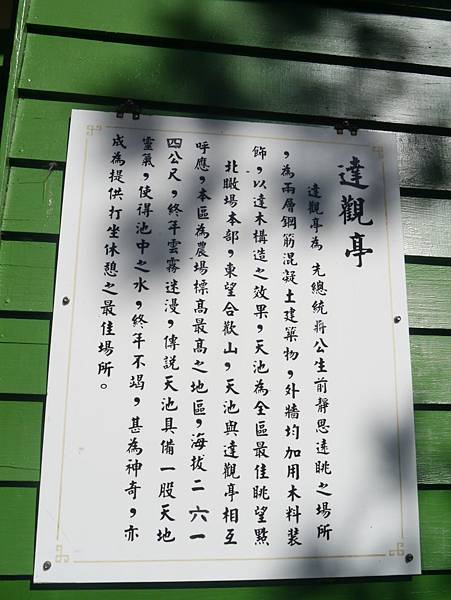 達觀亭
達觀亭為　先總統蔣公生前靜思遠眺之場所
，為兩層鋼筋混凝土建築物，外牆均加用木料裝
飾，以達木構造之效果，天池為全區最佳眺望點
北瞰場本部，東望合歡山，天池與達觀亭相互
呼應，本區為農場標高最高之地區，海拔二六一
四公尺，終年雲霧迷漫，傳說天池具備一股天地
靈氣，使得池中之水，終年不竭，甚為神奇，亦
成為提供打坐休憩之最佳場所。